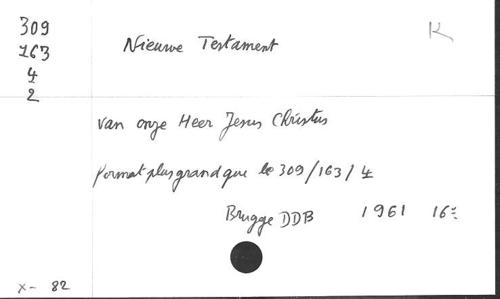 309
163
4
2
K
Nieuwe Testament
van onze Heer Jesus Christus
format plus grand que le 309/163/4
Brugge DDB 1961 16=
X- 82